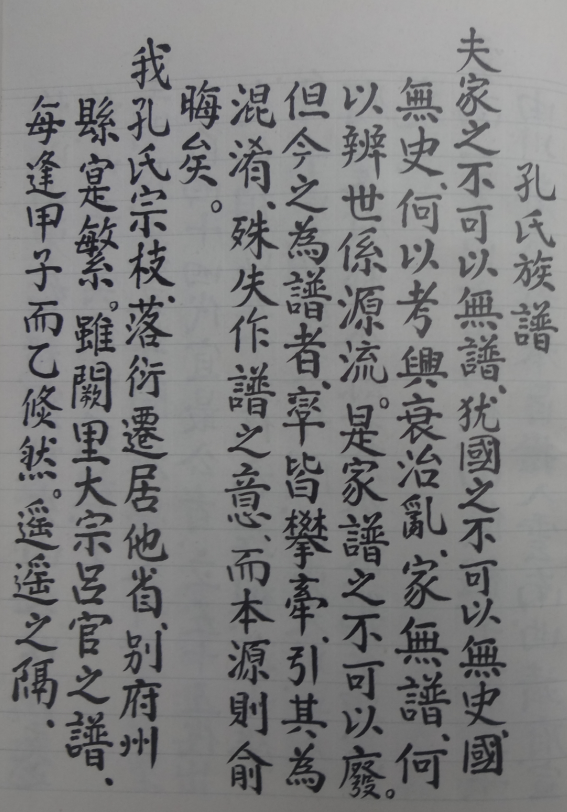 孔氏族譜
夫家之不可以無譜、犹國之不可以無史、國
無史、何以考興衰治亂、家無譜、何
以辨世係源流。是家譜之不可以廢。
但今之為譜者、率皆攀牽、引其為
混淆、殊失作譜之意、而本源則俞
晦矣。
我孔氏宗枝、落衍遷居他省、别府州
縣寔繁。雖闕里大宗呂官之譜、
每逢甲子而乙倏然。遥遥之隔、